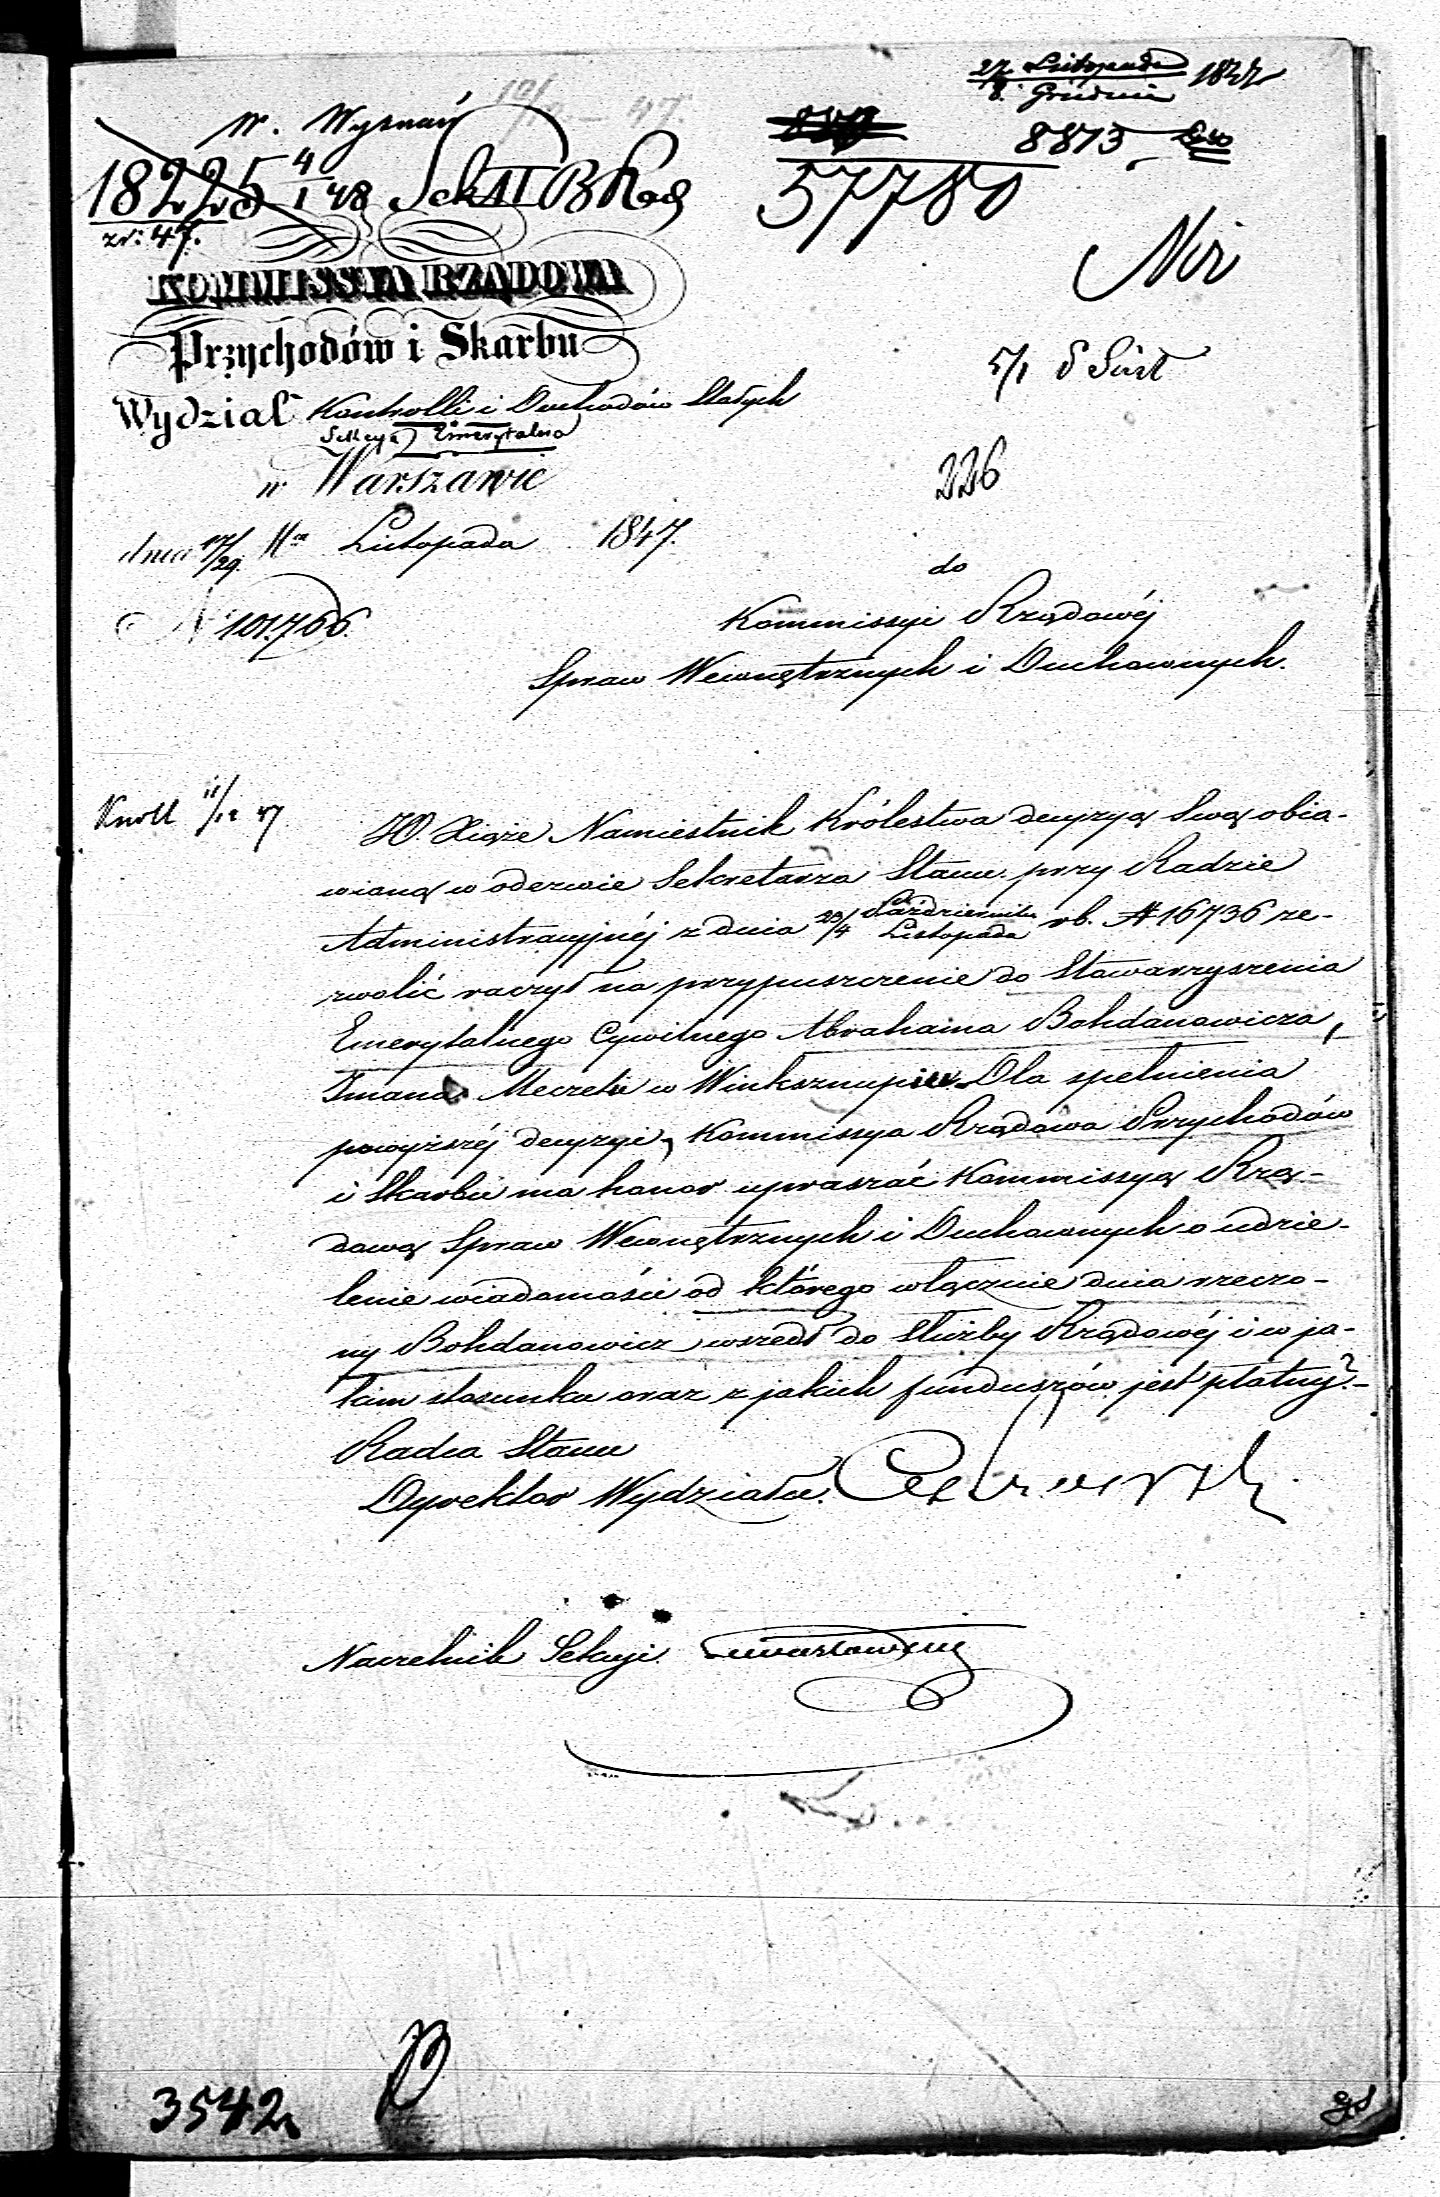 27 Listopada 1847
8. Grudnia
W. Wyznań
8873
18225 4/1 48 Sekt II
57780
zr: 47.
KOMMISSYA RZĄDOWA
Przychodów i Skarbu
5/1
Wydział Kontrolli i Dochodów Stałych
Sekcya Emerytalna
w Warszawie
226
dnia 17/29 Mca Listopada 1847.
do
N 101.766.
Kommissyi Rządowéj
Spraw Wewnętrznych i Duchownych.
Knoll 11/12 47
JO. Xiąże Namiestnik Królestwa decyzyą Swą obia-
wioną w odezwie Sekretarza Stanu przy Radzie
Administracyjnéj z dnia 23/4 Października/Listopada rb. N 16736 ze-
zwolić raczył na przypuszczenie do Stowarzyszenia
Emerytalnego Cywilnego Abrahama Bohdanowicza,
Imana Meczetu w Winksznupiu. Dla spełnienia
powyższéj decyzyi, Kommissya Rządowa Przychodów
i Skarbu ma honor upraszać Kommissyą Rzą-
dową Spraw Wewnętrznych i Duchownych o udzie-
lenie wiadomości od którego włącznie dnia rzeczo-
ny Bohdanowicz wszedł do służby Rządowéj i w ja-
kim stosunku oraz z jakich funduszów jest płatny?-
Radca Stanu
Dyrektor Wydziału.
Naczelnik Sekcyi
3542